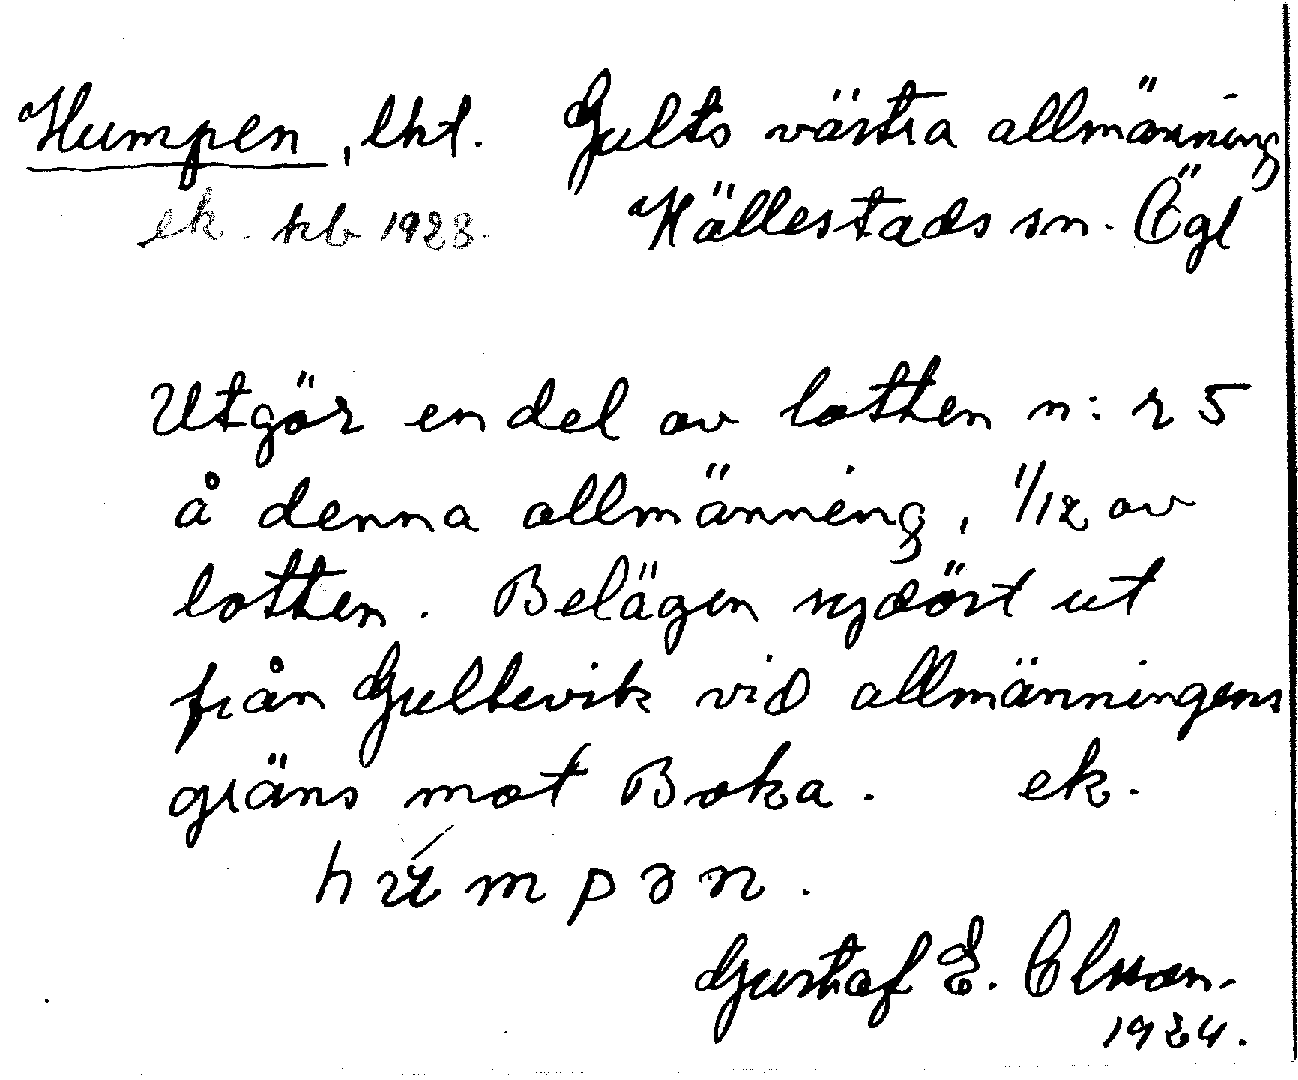 Humpen, lht. Gults västra allmänning
ek. kb 1928. Hällestads sn. Ögl
Utgör en del av lotten n:r 5
å denna allmänning, 1/12 av
lotten. Belägen sydöst ut
från Gultevik vid allmänningens
gräns mot Boka. ek.
húmpən.
Gustaf E. Olsson.
1924.